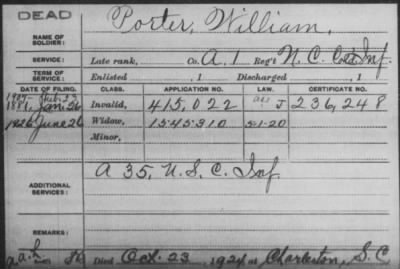 DEAD
NAME OF SOLDIER: Porter, William,
SERVICE: Late rank, Co. A. 1 Reg't N. C. Cold Inf.
TERM OF SERVICE: Enlisted , 1 Discharged , 1
DATE OF FILING. CLASS. APPLICATION NO. LAW. CERTIFICATE NO.
Jan. 26 Invalid, 415,022 J 236,248
1926 June 26 Widow, 1545310 5-1-20
Minor,
ADDITIONAL SERVICES: A 35, U. S. C. Inf
REMARKS:
Died Oct. 23, 1924 at Charleston, S. C.